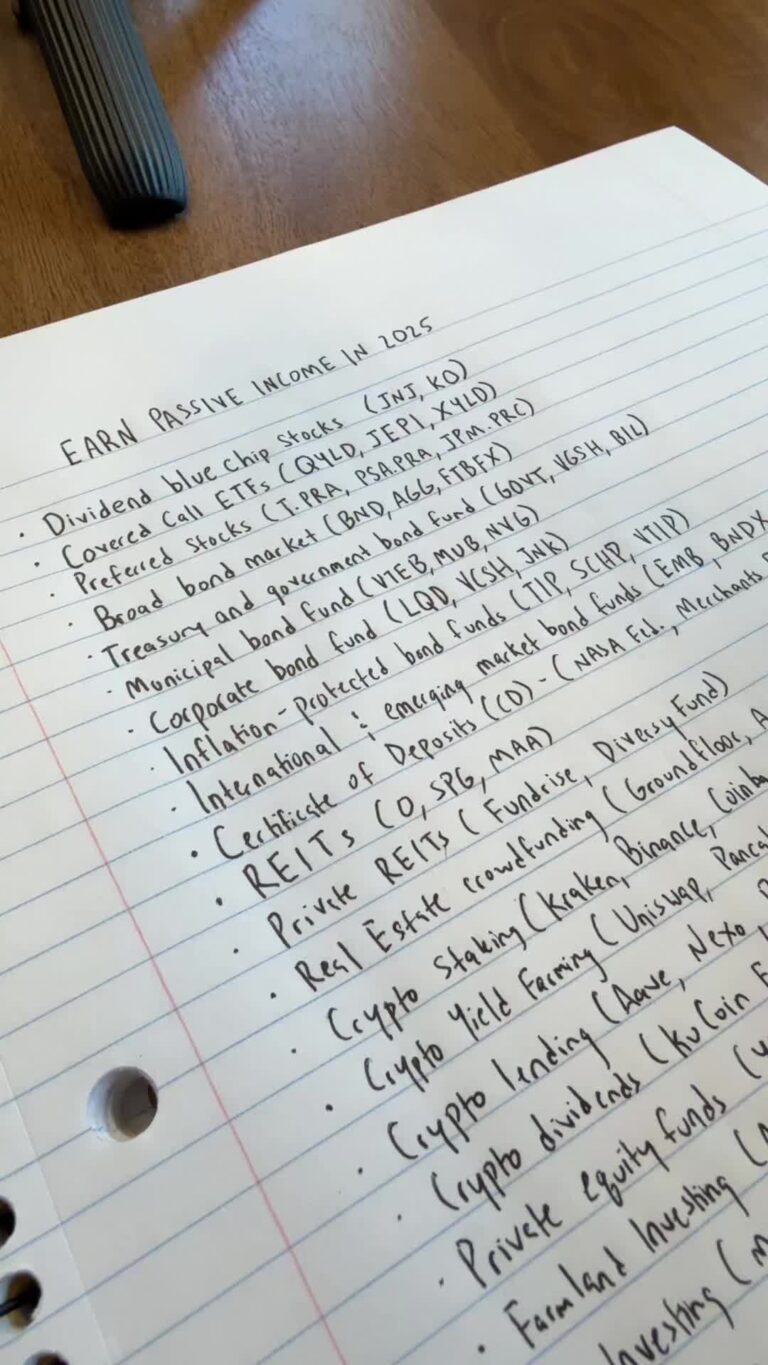 EARN PASSIVE INCOME IN 2025
• Dividend blue chip stocks (JNJ, KO)
• Covered Call ETFs (QYLD, JEPI, XYLD)
• Preferred Stocks (T.PRA, PSA.PRA, JPM.PRC)
• Broad bond market (BND, AGG, FTBFX)
• Treasury and government bond fund (GOVT, VGSH, BIL)
• Municipal bond fund (VTEB, MUB, NVG)
• Corporate bond fund (LQD, VCSH, JNK)
• Inflation-protected bond funds (TIP, SCHP, VTIP)
• International & emerging market bond funds (EMB, BNDX
• Certificate of Deposits (CD) - (NASA Fed., Merchants
• REITs (O, SPG, MAA)
• Private REITs (Fundrise, Diversyfund)
• Real Estate crowdfunding (Groundfloor, A
• Crypto Staking (Kraken, Binance, Coinba
• Crypto Yield Farming (Uniswap, Panca
• Crypto lending (Aave, Nexo,
• Crypto dividends (KuCoin
• Private equity funds (
• Farmland Investing (
Investing (